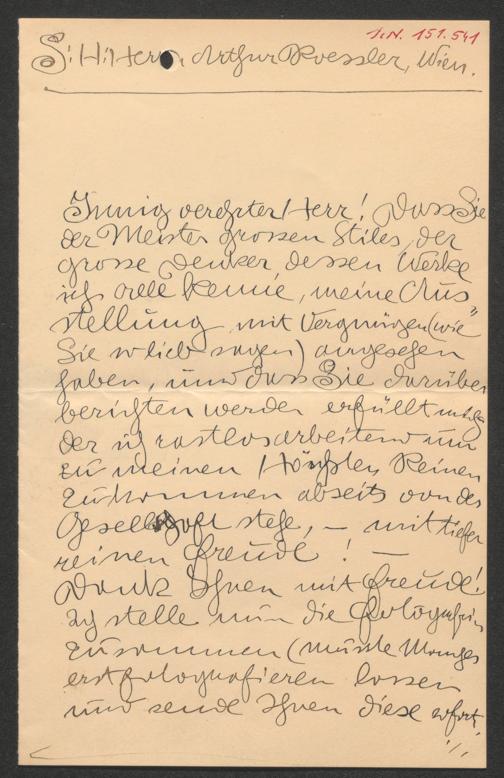 I.N. 151.541
S: H: Herrn Arthur Roessler, Wien.
Innig verehrter Herr! Dass Sie
der Meister grossen Stiles, der
grosse Denker, dessen Werke
ich alle kenne, meine Aus
stellung mit Vergnügen (wie"
Sie so lieb sagen) angesehen
haben, und dass Sie darüber
berichten werden erfüllt mich,
der ich rastlos arbeitend um
zu meinen Höchsten Reinen
zu kommen abseits von der
Gesellschaft stehe, – mit tiefer
reinen Freude! –
Dank Ihnen mit Freude!
Ich stelle nun die Fotografien
zusammen (musste Manches
erst fotografieren lassen
und sende Ihnen diese sofort.